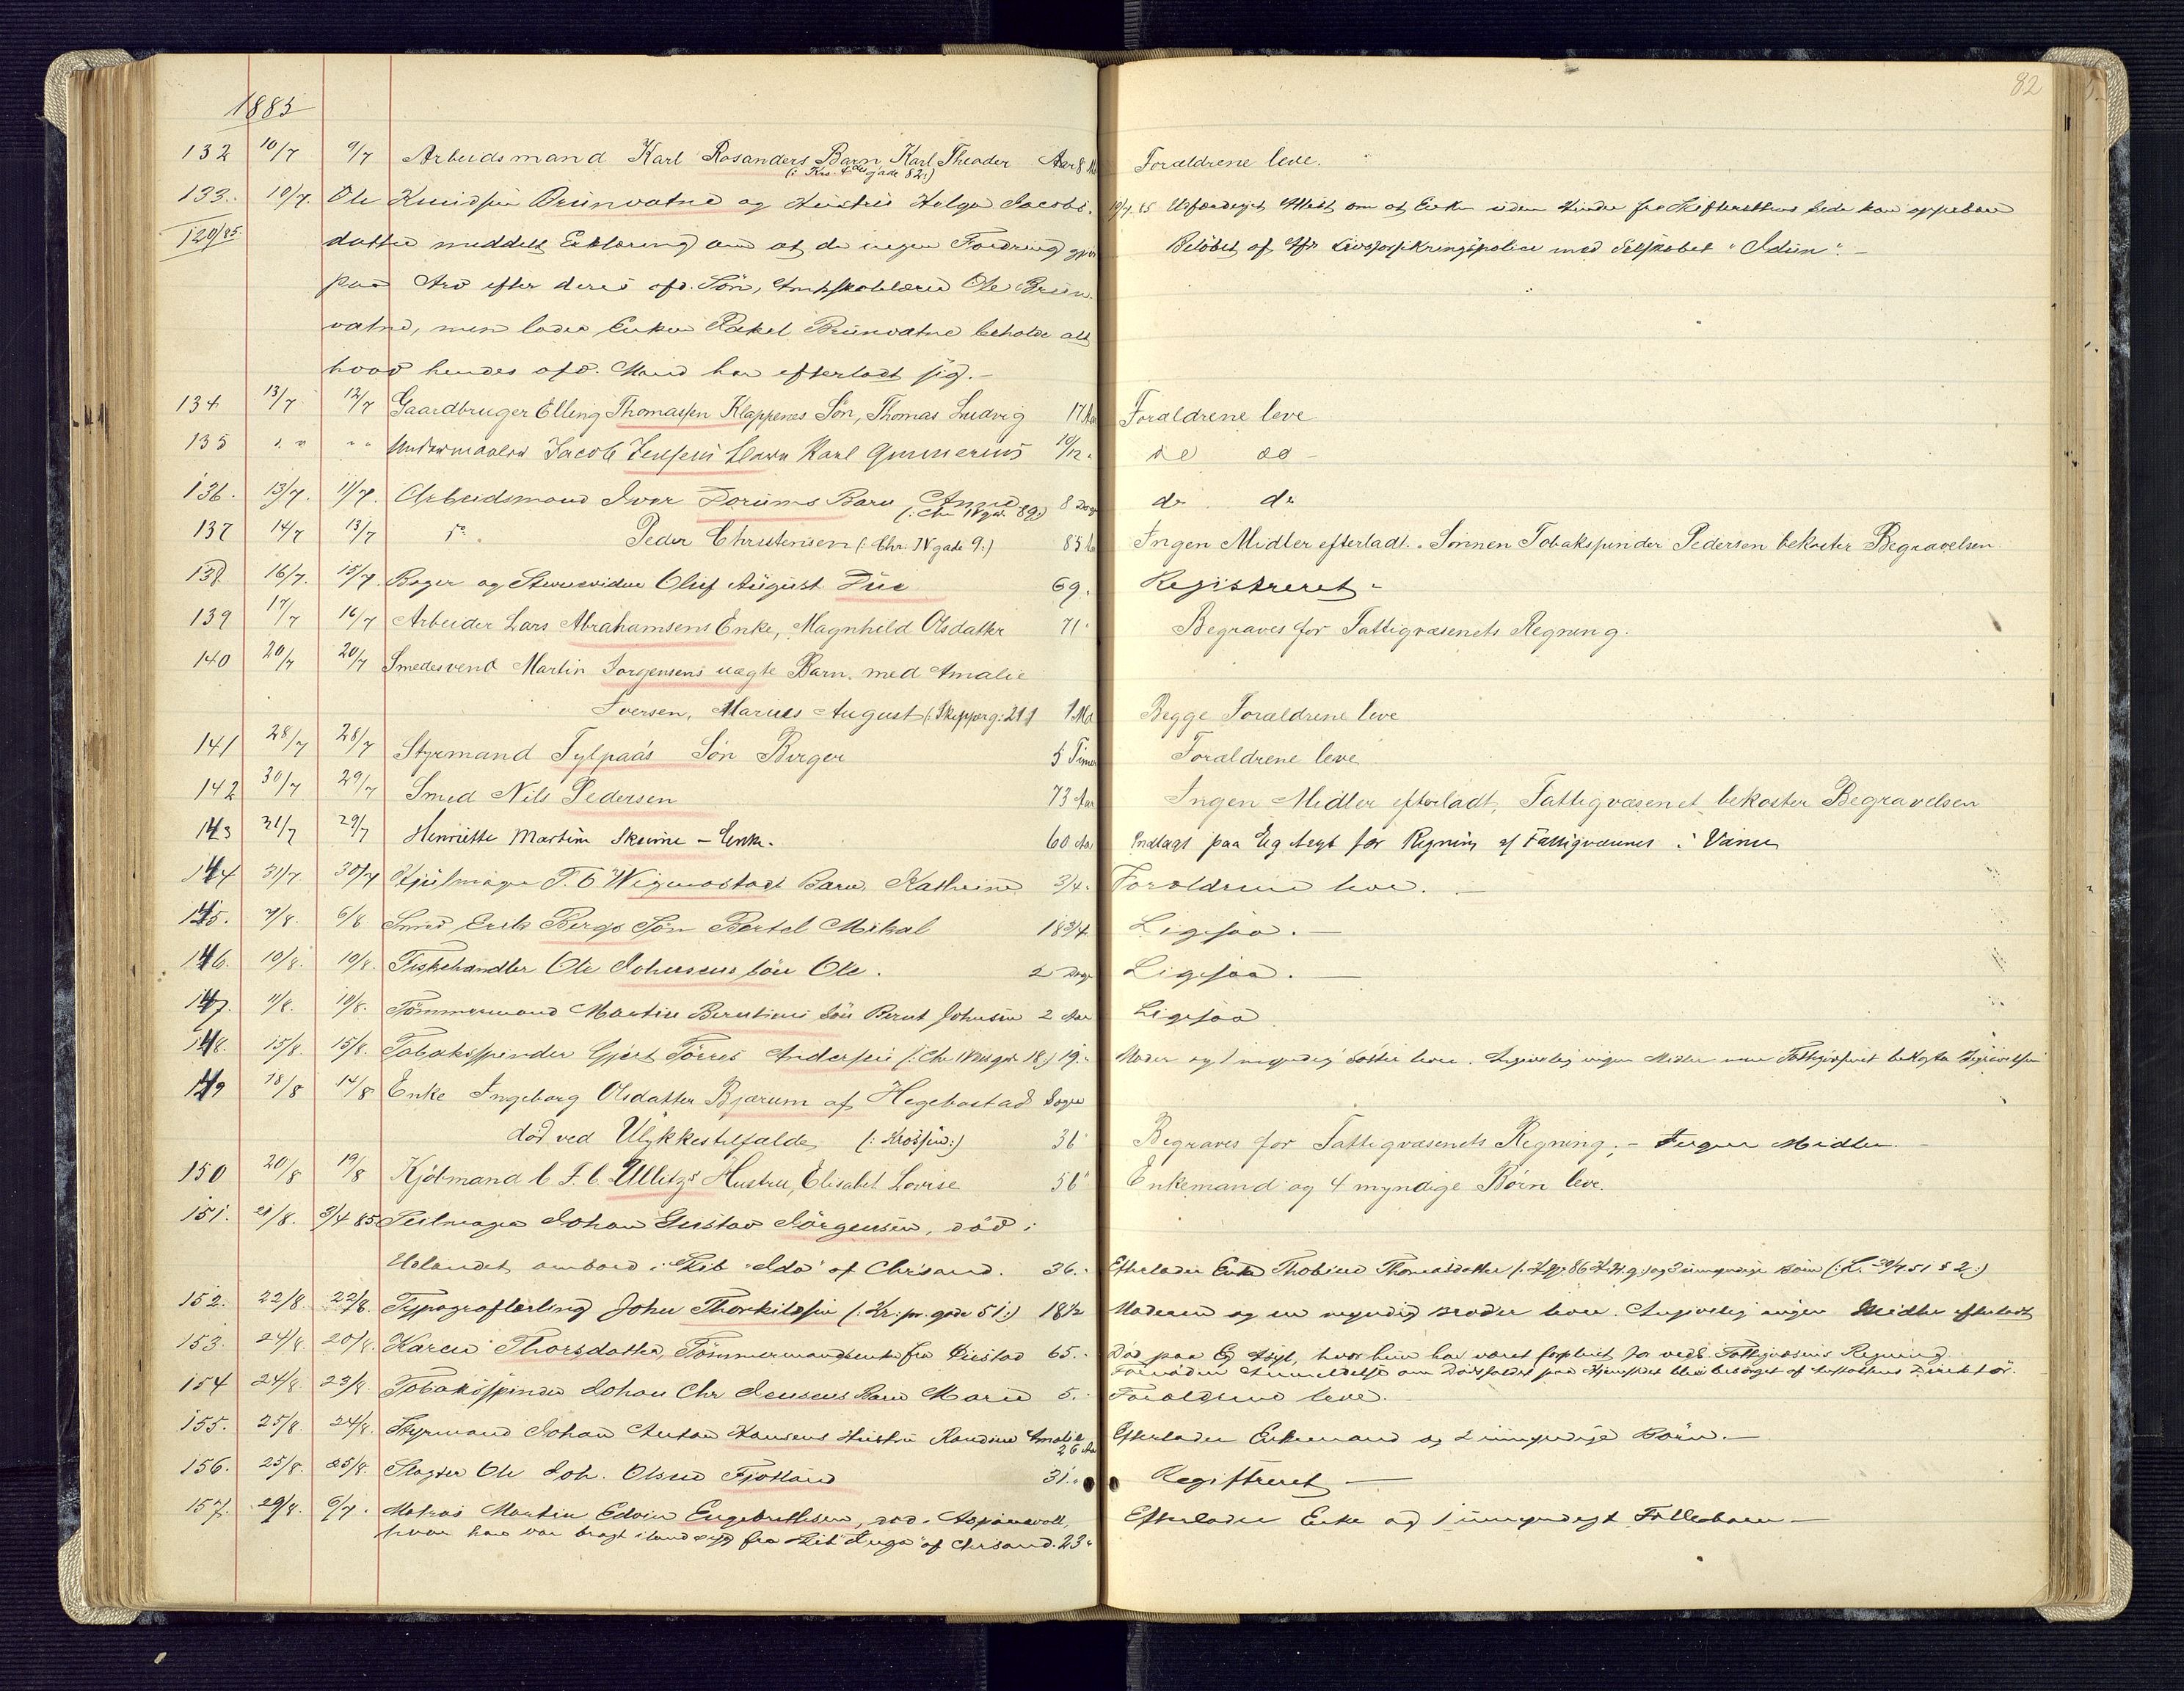 82
1885
132 10/7 9/7 Arbeidsmand Karl Rosanders Barn, Karl Theodor Aar 8 M Forældrene leve.
(: Krs. 4des gade 82:)
133. 10/7. Ole Knudsen Brünvatne og Hustru Helga Jacobs- 10/7 85 Udfærdiget Attest om at Enken uden Hinder fra Skifterettens Side kan oppebære
120/85 datter meddelt Erklæring om at de ingen Fordring gjør Beløbet af Livsforsikringspolice med Selskabet "Idun".-
paa Arv efter deres afd. Søn, Amtsskolelærer Ole Brün-
vatne, men lader Enken Rakel Brünvatne beholde alt
hvad hendes afd. Mand har efterladt sig.-
134 13/7 12/7 Gaardbruger Elling Thomassen Klappenes Søn, Thomas Ludvig 17 Aar Forældrene leve
135 " " " " Jacob Jensens Barn Karl Gunnerius 10/12. do do -
136. 13/7. 11/7. Arbeidsmand Ivar Dorums Barn Anne 8 Dage do do
(: Chr IV gad 89:)
137 14/7 13/7 do Peder Christensen (: Chr. IV gade 9:) 85 Ingen Midler efterladt. Sønnen Tobakspinder Pedersen bekoster Begravelsen
138 16/7. 15/7. Bager og Oluf August Due 69. Registreret.-
139 17/7 16/7 Arbeider Lars Abrahamsens Enke, Magnhild Olsdatter 71" Begraves for Fattigvæsenets Regning.
140 20/7 20/7 Smedesvend Martin Jørgensens uægte Barn med Amalie
Iversen, Marius August (: Skipperg. 21 1 Md Begge Forældrene leve
141 28/7 28/7 Styrmand Tylpaas Søn Birger 5 Timer Forældrene leve
142 30/7 29/7 Smed Nils Pedersen 73 Aar Ingen Midler efterladt, Fattigvæsenet bekoster Begravelsen
143 31/7 29/7 Henriette Martine Skeime - Enke. 60 Aar Indlagt paa Eg Asyl for Regning af Fattigvæsenet i Vanse
144 31/7. 30/7 Hjulmager T. C Wigmostads Barn, Kathrine 3/4. Forældrene leve. -
145. 7/8. 6/8 Smed Erik Bergs Søn Bertel Mikal 18 3/4 Ligesaa. -
146. 10/8. 10/8. Fiskehandler Ole Johnsens Søn Ole. 2 Dage Ligesaa. -
147. 11/8. 10/8. Tømmermand Martin Berntsens Søn Bernt Johnsen 2 Aar Ligesaa
148. 15/8. 15/8. Tobakspinder Gjert Tørres Andersen (: Chr IV des gade 18:) 19. Moder og 1 myndig Søster leve. Angivelig ingen Midler men Fattigvæsenet bekoster Begravelsen
149 18/8 14/8 Enke Ingeborg Olsdatter Bjærum af Hegebostad Sogn
død ved Ulykkestilfælde (: Krossen:) 36" Begraves for Fattigvæsenets Regning; - Ingen Midler. -
150 20/8 19/8 Kjøbmand C F. C. Ullitz's Hustru, Elisabet Lovise 56" Enkemand og 4 myndige Børn leve.
151. 21/8. 3/4 85 Seilmager Johan Gustav Jørgensen, død i
Udlandet ombord i Skib "Ida" af Chrsand. 36. Efterlader Enke Thobine Thomasdatter og 3 umyndige Børn (: L. 30/7 51 § 2:)
152. 22/8 22/8. Typograflærling John Thorkildsen (: Kr: pr. gade 51:) 18 1/2 Moderen og en myndig Broder leve. Angivelig ingen Midler efterladt
153. 24/8 20/8. Karen Thorsdatter, Tømmermandsenke fra 65. Død paa Eg Asyl, hvor hun har været forpleiet for vedk. Fattigvæsens Regning.
Fornøden Anmeldelse om Dødsfaldet paa Hjemstedet blev besørget af Anstaltens Direktør.
154 24/8. 23/8. Tobakspinder Johan Chr Jensens Barn Marie 5. Forældrene leve.
155. 25/8. 24/8. Styrmand Johan Anton Hansens Hustru Randine Amalie Efterlader Enkemand og 2 umyndige Børn. -
26 Aar
156. 25/8. 25/8. Slagter Ole Joh. Olsen Fjotland 31. Registreret -
157. 29/8. 6/7. Matros Martin Edvin Engebrethsen, død i Aspinwall, Efterlader Enke og 1 umyndigt Fællesbarn -
hvor han var bragt iland syg fra Skib "Inga" af Chrsand. 23"